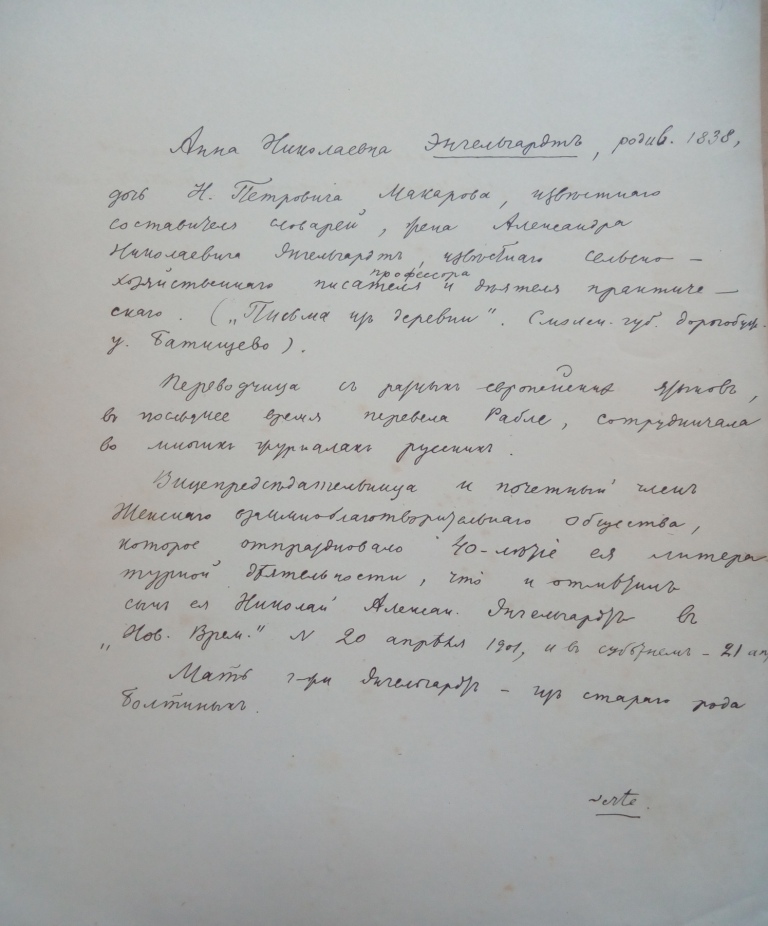 Анна Николаевна Энгельгардтъ, родив. 1838,
дочь Н. Петровича Макарова, извѣстнаго
составителя словарей, жена Александра
Николаевича Энгельгардтъ, извѣстнаго сельско-
профессора
хозяйственнаго писателя и дѣятеля практиче-
скаго. („Письма изъ деревни". Смолен. губ. Дорогобуж.
у. Батищево).
Переводчица съ разныхъ европейскихъ языковъ,
въ послѣднее время перевела Рабле, сотрудничала
во многихъ журналахъ русскихъ.
Вицепредсѣдательница и почетный членъ
Женскаго взаимноблаготворительнаго общества,
которое отпраздновало 40-лѣтіе ея литера-
турной дѣятельности, что и отмѣтилъ
сынъ ея Николай Алексан. Энгельгардтъ въ
„Нов. Врем." N 20 апрѣля 1901, и въ субботнемъ - 21 апр
Мать г-жи Энгельгардтъ - изъ стараго рода
Болтиныхъ.
verte.